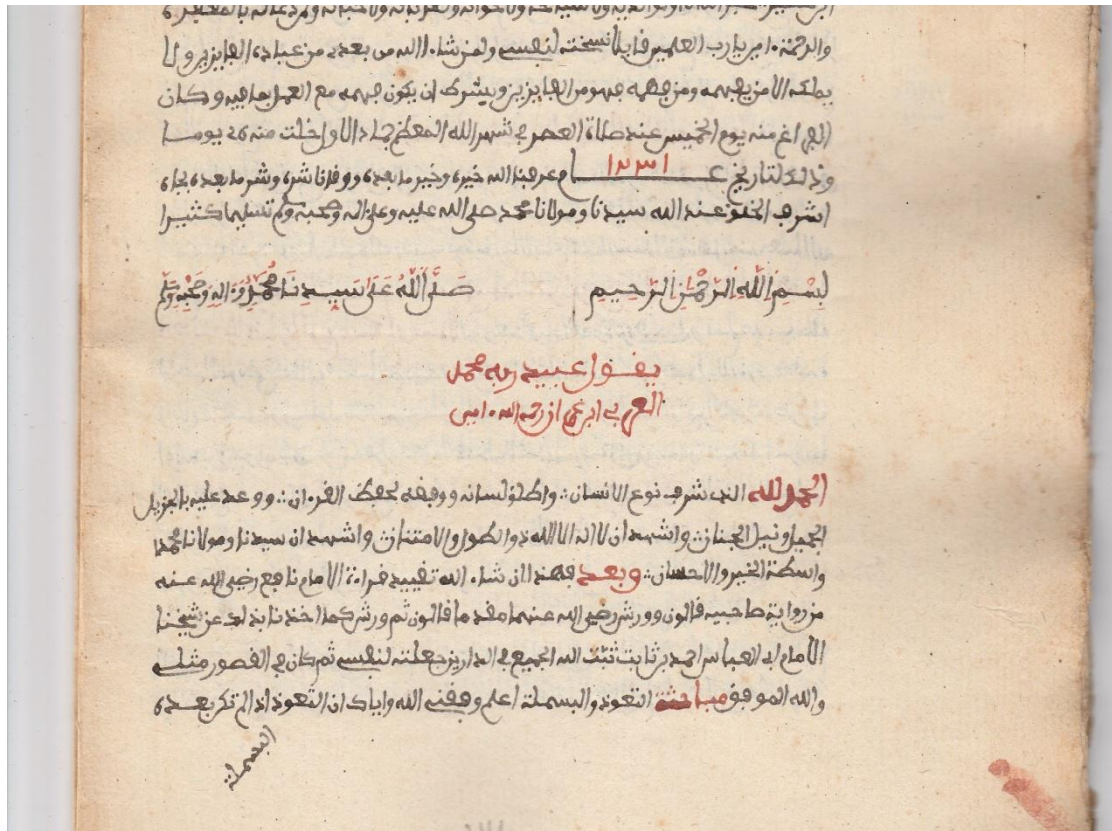 والرحمة ءامين يارب العلمين قايلا نسخته لنفسي ولمن شاء الله من بعدي من عباده الفايزين ولا
يملكه الا من يفهمه ومن فهمه فهو من الفايزين ويشترط ان يكون فهمه مع العمل بما فيه وكان
الفراغ منه يوم الخميس عند صلاة العصر في شهر الله المعظم جماد الاول خلت منه يوما
وذلك لتاريخ عام ١٢٣١ عرفنا الله خيره وخير ما بعده ووقانا شره وشر ما بعده بجاه
اشرف الخلق عند الله سيدنا ومولانا محمد صلى الله عليه وعلى اله وصحبه وسلم تسليما كثيرا
بِسْمِ اللهِ الرَّحْمٰنِ الرَّحِيمِ صَلَّى اللهُ عَلَى سَيِّدِنَا مُحَمَّدٍ وَءَالِهِ وَصَحْبِهِ وَسَلَّمَ
يقول عبيد ربه محمد
العربي ابن رحمه الله ءامين
الحمد لله الذي شرف نوع الانسان واطلق لسانه ووفقه لحفظ القرءان ووعد عليه بالجزيل
الجميل ونيل الجنان واشهد ان لا اله الا الله ذو الطول والامتنان واشهد ان سيدنا ومولانا محمدا
واسطة الخير والاحسان وبعد فهذا ان شاء الله تقييد قراءة الامام نافع رضي الله عنه
من رواية صاحبيه قالون وورش رضي الله عنهما مقدما قالون ثم ورش كما اخذنا بذلك عن شيخنا
الامام ابي العباس احمد بن ثابت ثبت الله الجميع في الدارين جعلته لنفسي ثم كان في القصور مثلي
والله الموفق مباحثة التعوذ والبسملة اعلم وفقني الله واياك ان التعوذ اذا لم تكن بعده
البسملة